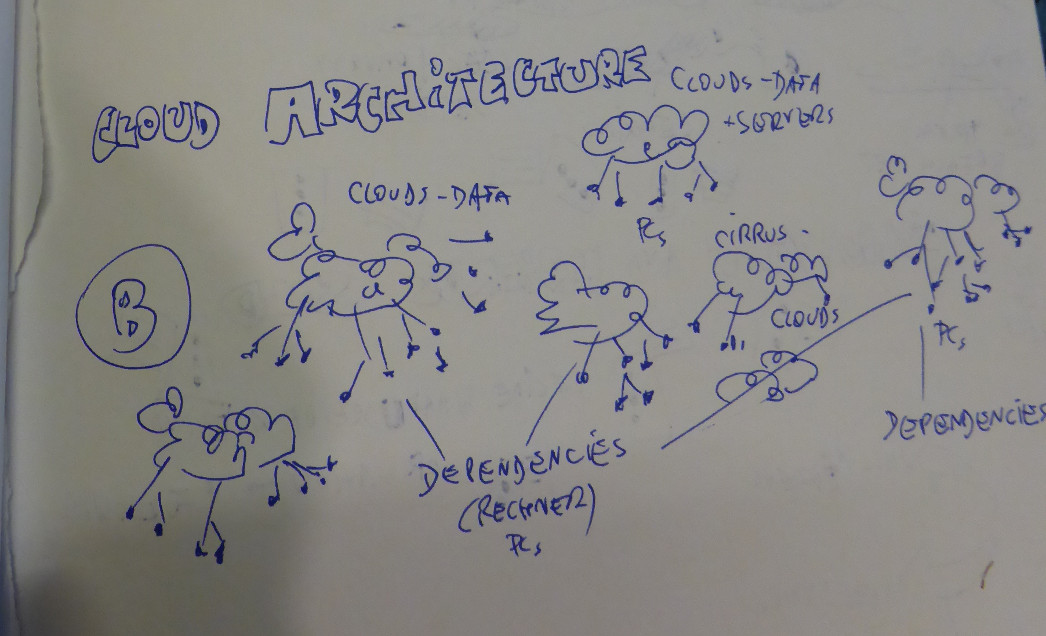 CLOUD ARCHITECTURE
CLOUDS-DATA
+SERVERS
PCs
CLOUDS-DATA
CIRRUS-
CLOUDS
B
PCs
DEPENDENCIES
DEPENDENCIES
(RECHNER)
PCs